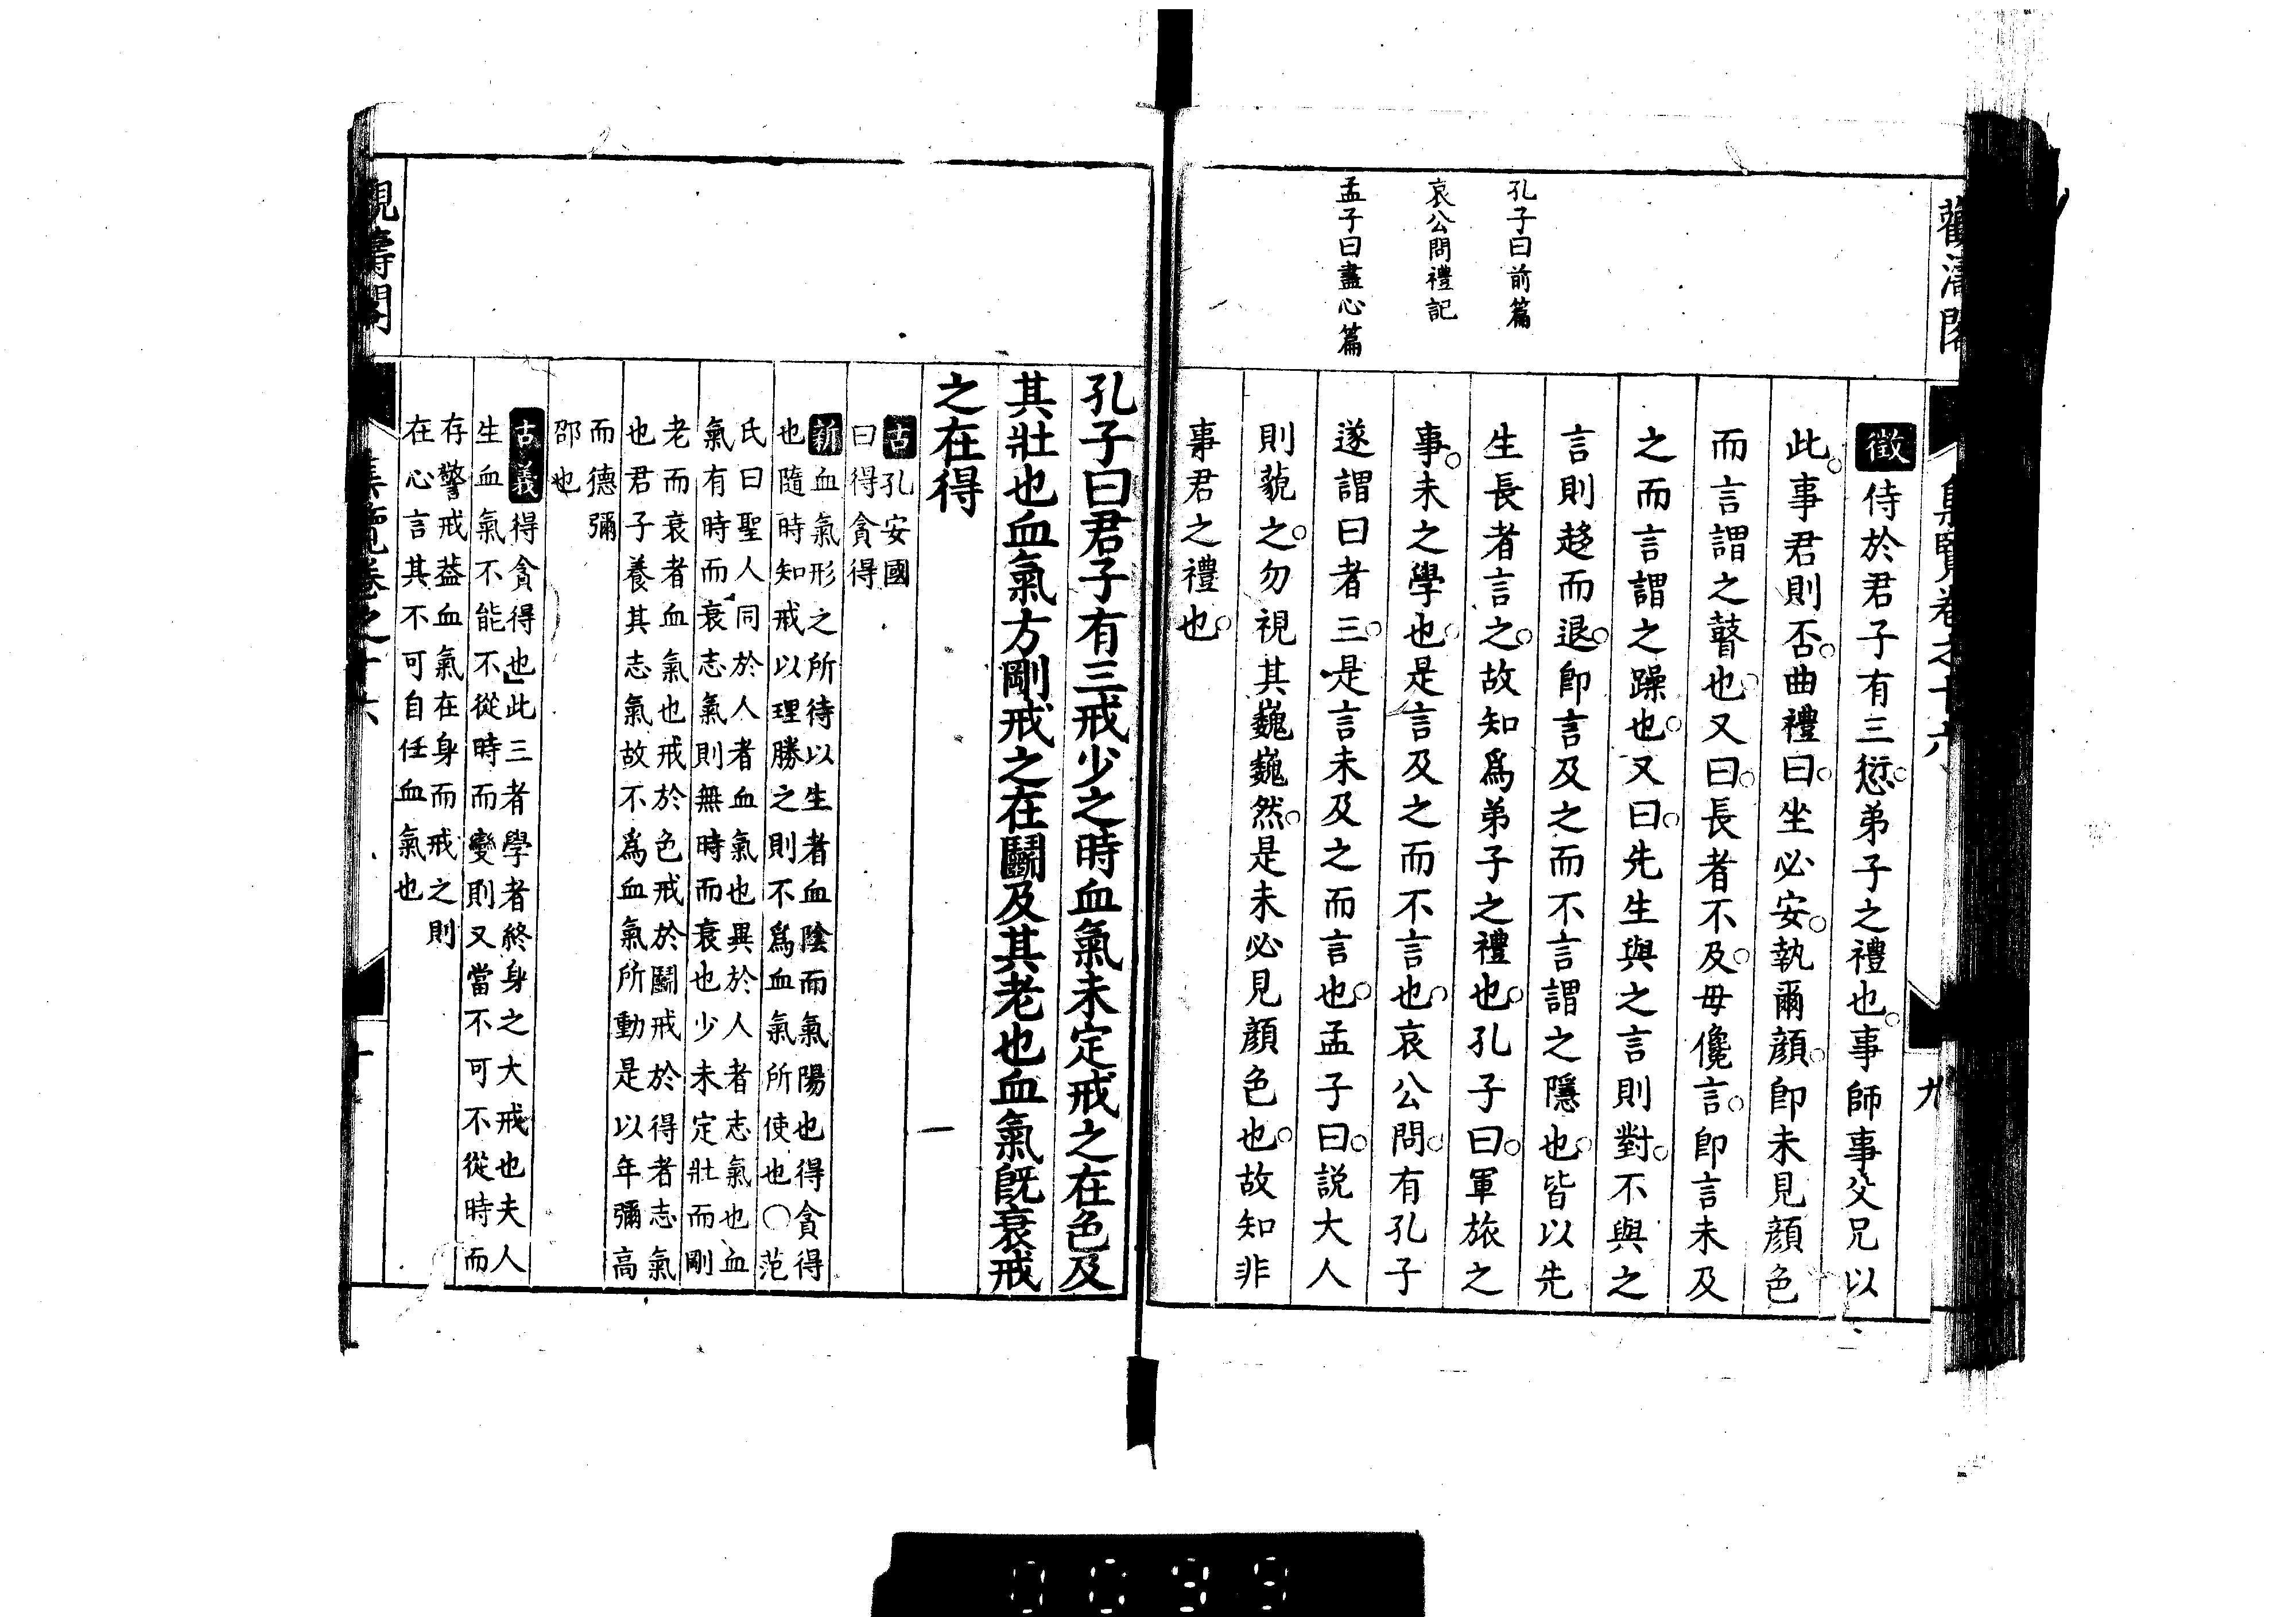 孔子曰前篇
哀公問禮記
孟子曰盡心篇
徵侍於君子有三愆弟子之禮也事師事父兄以
此事君則否曲禮曰坐必安執爾顏卽未見顏色
而言謂之瞽也又曰長者不及毋儳言卽言未及
之而言謂之躁也又曰先生與之言則對不與之
言則趍而退卽言及之而不言謂之隱也皆以先
生長者言之故知爲弟子之禮也孔子曰軍旅之
事未之學也是言及之而不言也哀公問有孔子
遂謂曰者三是言未及之而言也孟子曰説大人
則藐之勿視其巍巍然是未必見顏色也故知非
事君之禮也
九
孔子曰君子有三戒少之時血氣未定戒之在色及
其壯也血氣方剛戒之在鬭及其老也血氣既衰戒
之在得
古孔安國
曰得貪得
新血氣形之所待以生者血陰而氣陽也得貪得
也隨時知戒以理勝之則不爲血氣所使也〇范
氏曰聖人同於人者血氣也異於人者志氣也血
氣有時而衰志氣則無時而衰也少未定壯而剛
老而衰者血氣也戒於色戒於鬭戒於得者志氣
也君子養其志氣故不爲血氣所動是以年彌高
而德彌
邵也
古義得貪得也此三者學者終身之大戒也夫人
生血氣不能不從時而變則又當不可不從時而
存警戒葢血氣在身而戒之則
在心言其不可自任血氣也